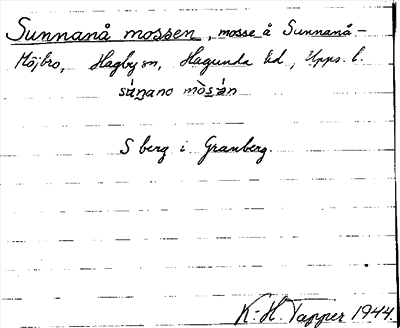 Sunnanå mossen, mosse å Sunnanå-
Höjbro, Hagby sn, Hagunda hd, Upps. l.
sùnano mòsán
S berg i Granberg.
K.-H. Tapper 1944.